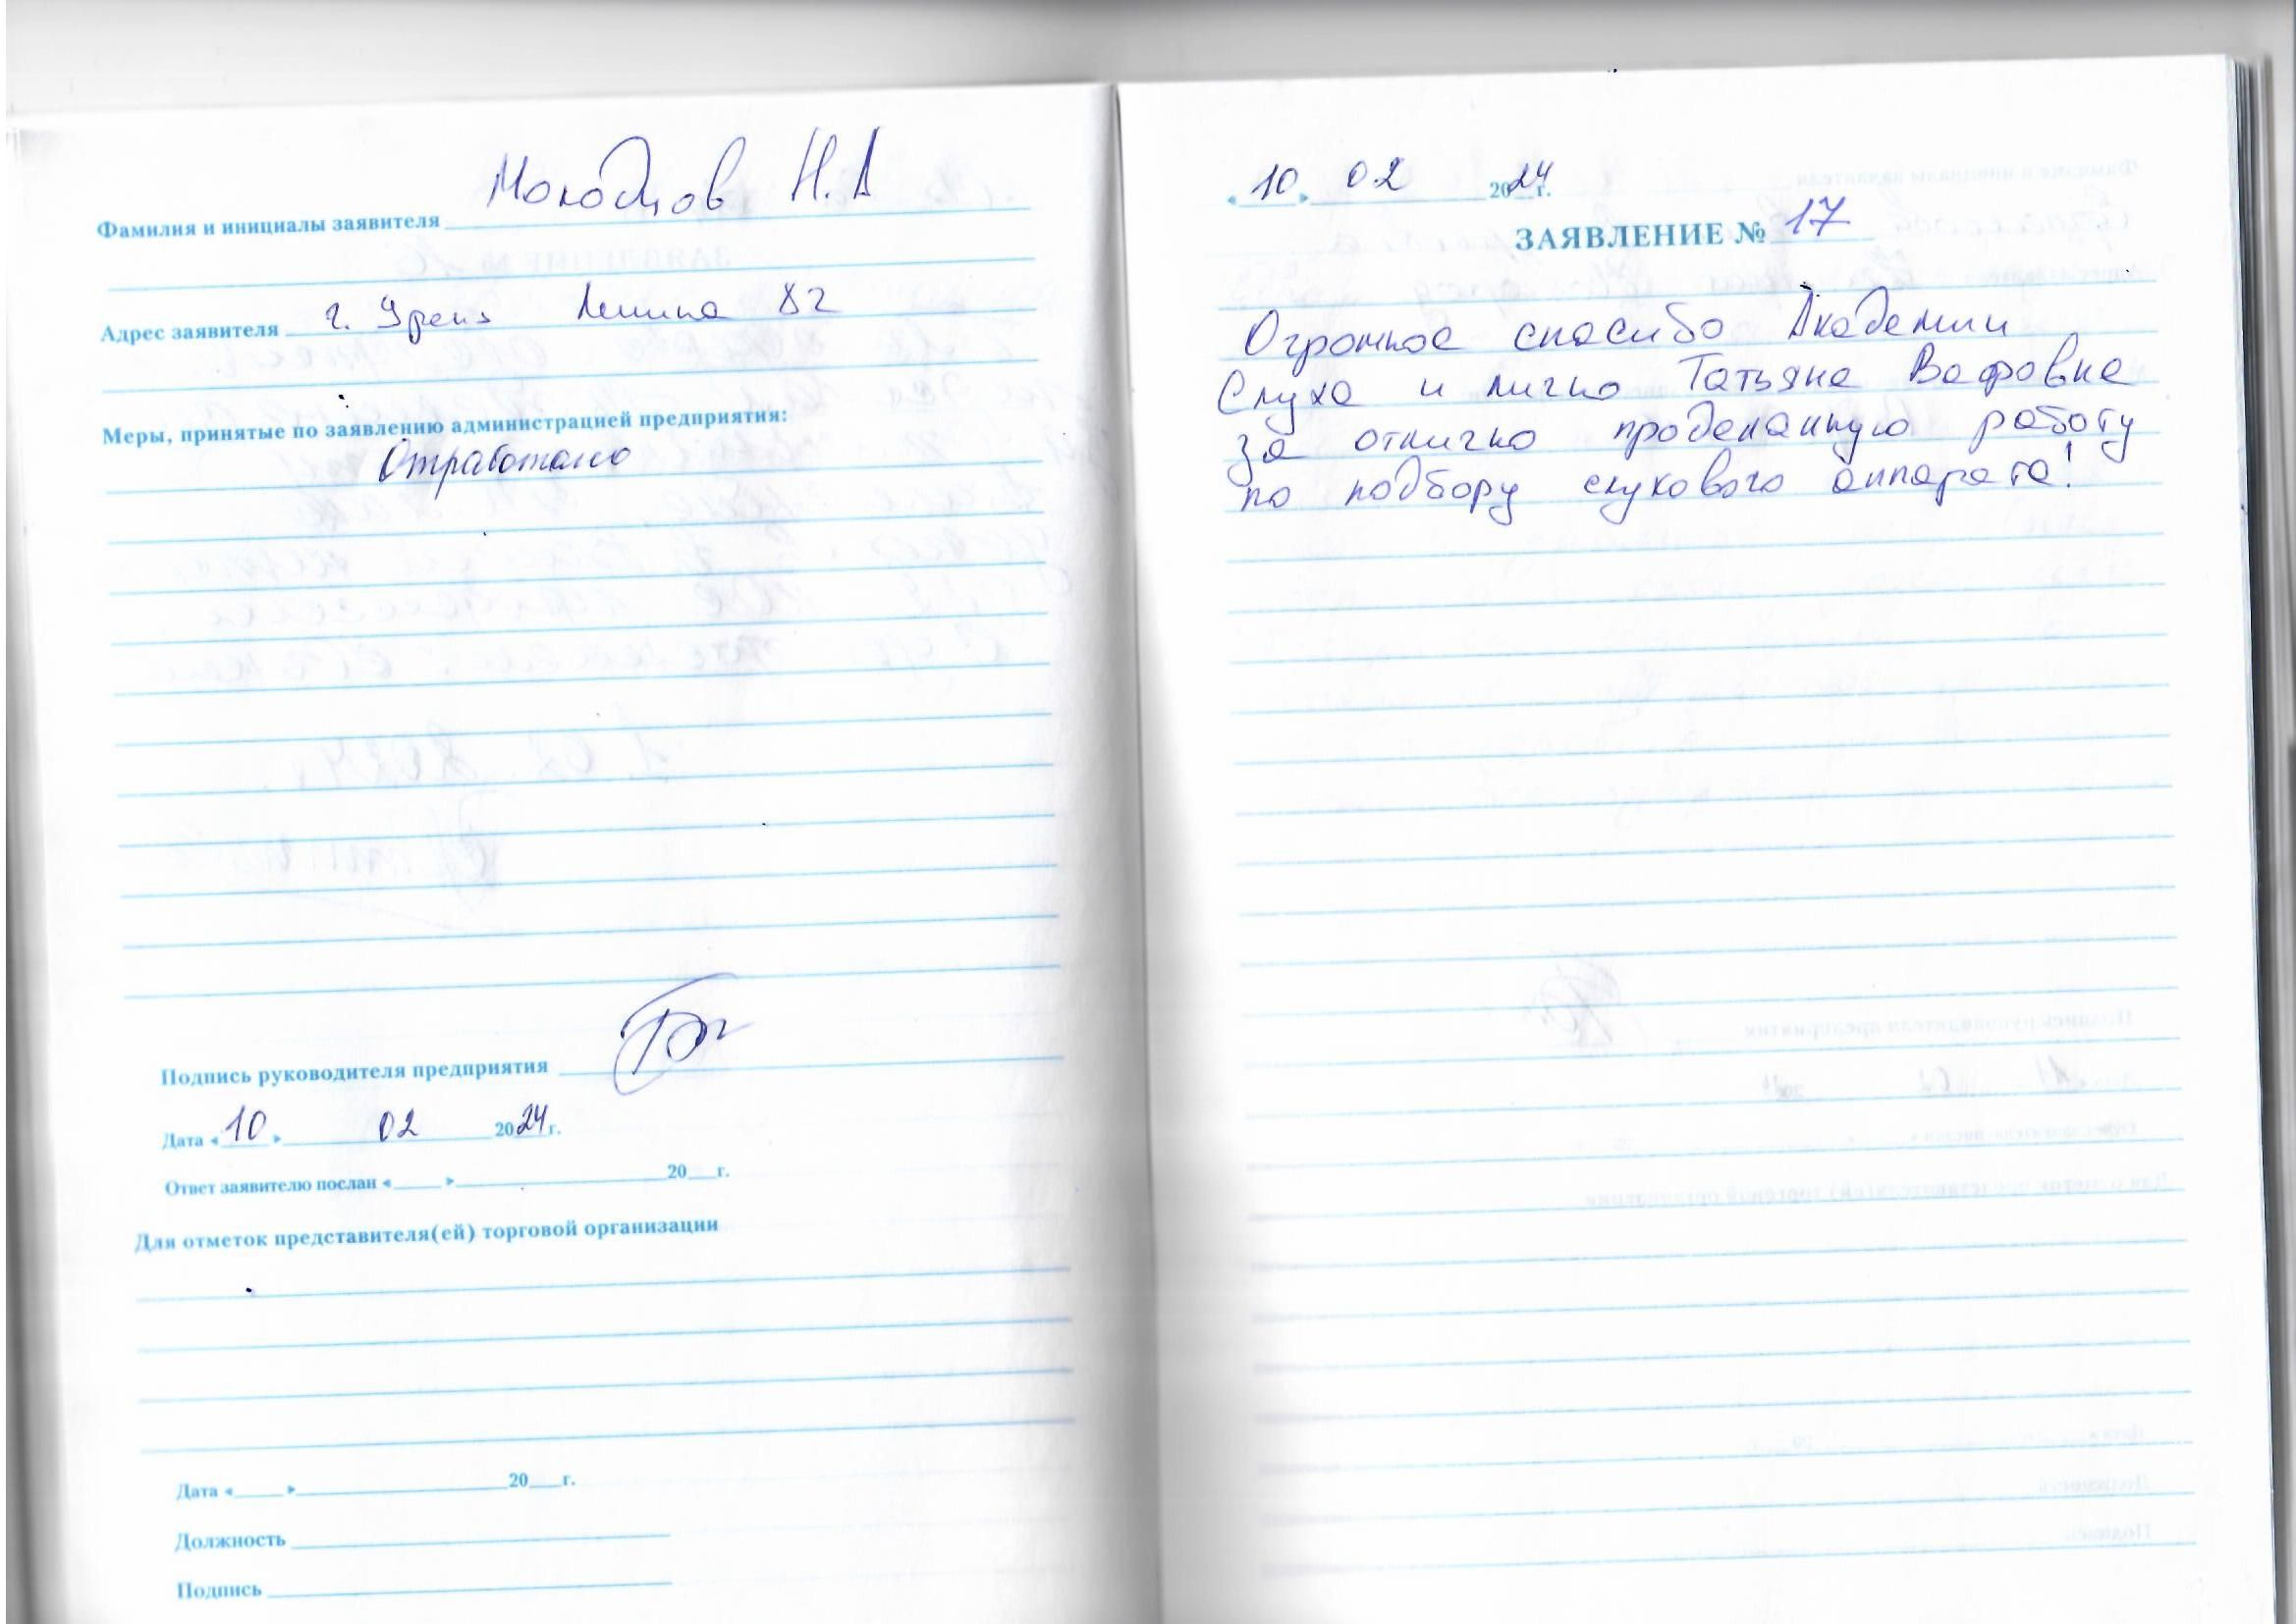 Фамилия и инициалы заявителя Молодцов Н.А
Адрес заявителя г. Урень Ленина 82
Меры, принятые по заявлению администрацией предприятия:
Отработано
Подпись руководителя предприятия
Дата «10» 02 2024г.
Ответ заявителю послан «___»___20__г.
Для отметок представителя(ей) торговой организации
Дата «___»___20__г.
Должность
Подпись
«10» 02 2024г.
ЗАЯВЛЕНИЕ № 17
Огромное спасибо Академии
Слуха и лично Татьяне Вафовне
за отлично проделанную работу
по подбору слухового аппарата!